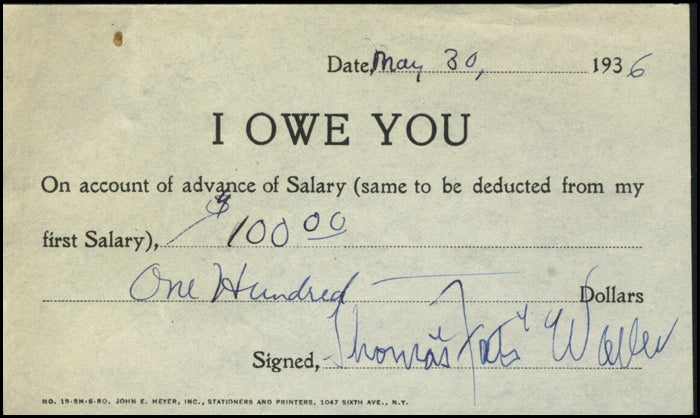 Date, May 30, 1936
I OWE YOU
On account of advance of Salary (same to be deducted from my
first Salary), $100 00
One Hundred Dollars
Signed, Thomas "Fats" Waller
NO. 19-5M-6-RO. JOHN E. MEYER, INC., STATIONERS AND PRINTERS, 1047 SIXTH AVE., N.Y.